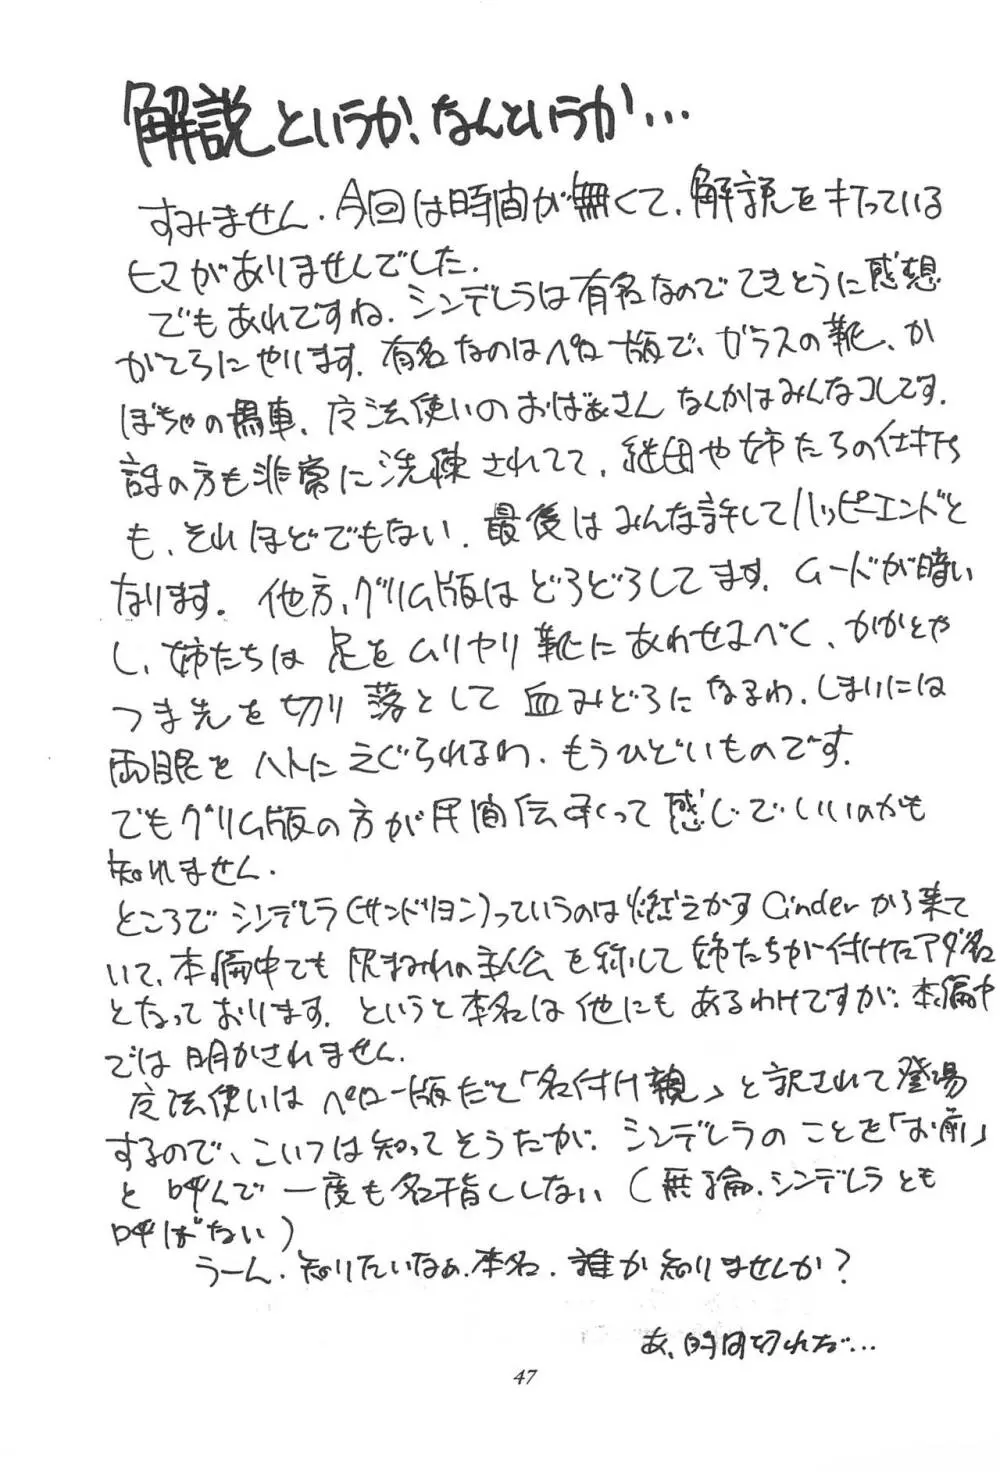 解説というか、なんというか…
すみません. 今回は時間が無くて、解説を打っている
ヒマがありませんでした.
でもあれですね. シンデレラは有名なのでてきとうに感想
がてらにやります. 有名なのはペロー版で、ガラスの靴、か
ぼちゃの馬車、魔法使いのおばあさんなんかはみんなコレです.
話の方も非常に洗練されてて、継母や姉たちの仕打ち
も、それほどでもない. 最後はみんな許してハッピーエンドと
なります. 他方、グリム版はどろどろしてます. ムードが暗い
し、姉たちは足をムリヤリ靴にあわせるべく、かかとや
つま先を切り落として血みどろになるわ. しまいには
両眼をハトにえぐられるわ. もうひどいものです.
でもグリム版の方が民間伝承って感じでいいのかも
知れません.
ところでシンデレラ(サンドリヨン)っていうのは燃えかすCinderから来て
いて、本編中でも灰まみれの主人公を称して姉たちが付けたアダ名
となっております. というと本名は他にもあるわけですが、本編中
では明かされません.
魔法使いはペロー版だと「名付け親」と訳されて登場
するので、こいつは知ってそうだが、シンデレラのことを「お前」
と呼んで一度も名指ししない(無論、シンデレラとも
呼ばない)
うーん. 知りたいなぁ、本名. 誰か知りませんか?
あ、時間切れだ…
47